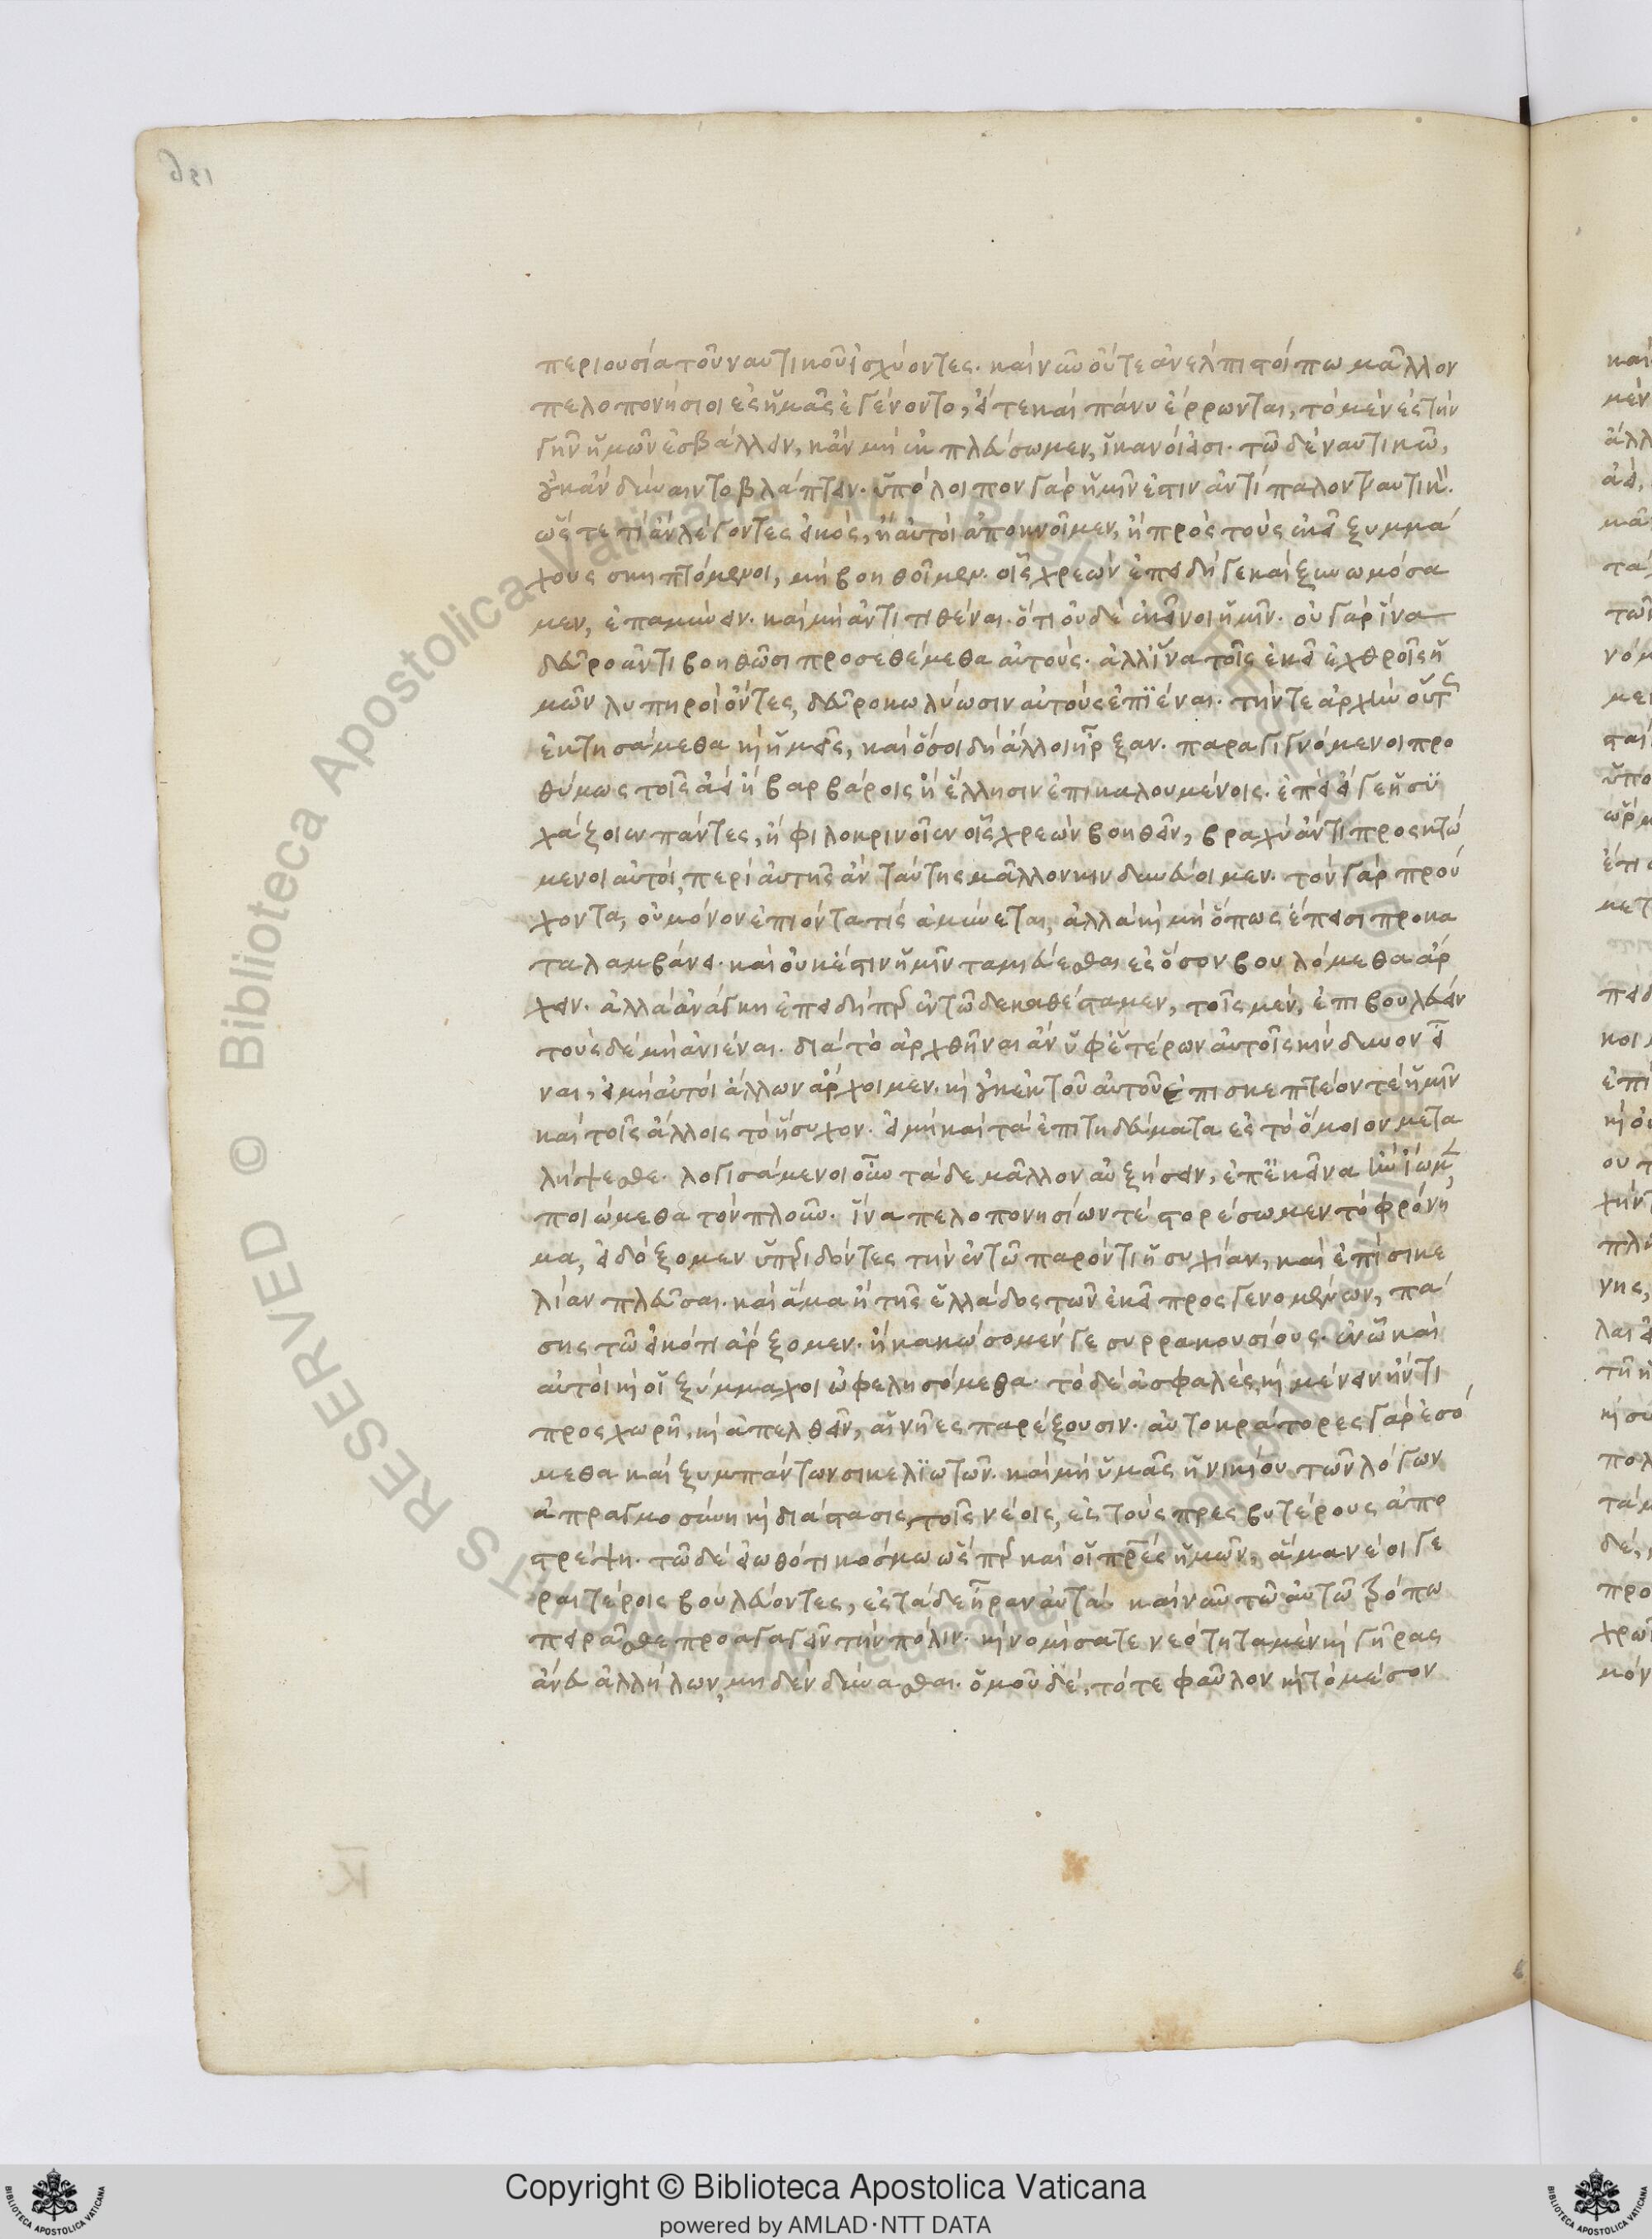 περιουσία τοῦ ναυτικοῦ ἰσχύοντες. καὶ νῦν οὔτε ἀνέλπιστοί πω μᾶλλον
πελοπονήσιοι ἐς ἡμᾶς ἐγένοντο, εἴ τε καὶ πάνυ ἔρρωνται, τὸ μὲν ἐς τὴν
γῆν ἡμῶν ἐσβάλλειν, κἂν μὴ ἐκπλεύσωμεν, ἱκανοί εἰσι. τῶ δὲ ναυτικῶ,
οὐκ ἂν δύναιντο βλάπτειν. ὑπόλοιπον γὰρ ἡμῖν ἐστιν ἀντίπαλον ναυτικόν.
ὥστε τί ἂν λέγοντες εἰκὸς, ἢ αὐτοὶ ἀποκνοῖμεν, ἢ πρὸς τοὺς ἐκεῖ ξυμμά
χους σκηπτόμενοι, μὴ βοηθοῖμεν. οἷς χρεὼν ἐπειδή γε καὶ ξυνωμόσα
μεν, ἐπαμύνειν. καὶ μὴ ἀντιτιθέναι. ὅτι οὐδὲ ἐκεῖνοι ἡμῖν. οὐ γὰρ ἵνα
δεῦρο ἀντιβοηθῶσι προσεθέμεθα αὐτούς. ἀλλ' ἵνα τοῖς ἐκεῖ ἐχθροῖς ἡ
μῶν λυπηροὶ ὄντες, δεῦρο κωλύωσιν αὐτοὺς ἐπϊέναι. τήν τε ἀρχὴν οὕτως
ἐκτησάμεθα καὶ ἡμεῖς, καὶ ὅσοι δὴ ἄλλοι ἦρξαν. παραγιγνόμενοι προ
θύμως τοῖς ἀεὶ ἢ βαρβάροις ἢ ἕλλησιν ἐπικαλουμένοις. ἐπεὶ εἴ γε ἡσυ
χάζοιεν πάντες, ἢ φιλοκρινοῖεν οἷς χρεὼν βοηθεῖν, βραχὺ ἄν τι προσκτώ
μενοι αὐτοὶ, περὶ αὐτῆς ἂν ταύτης μᾶλλον κινδυνεύοιμεν. τὸν γὰρ πρού
χοντα, οὐ μόνον ἐπιόντα τὶς ἀμύνεται, ἀλλὰ καὶ μὴ ὅπως ἔπεισι προκα
ταλαμβάνει. καὶ οὐκ ἔστιν ἡμῖν ταμιεύεσθαι ἐς ὅσον βουλόμεθα ἄρ
χειν. ἀλλὰ ἀνάγκη ἐπειδήπερ ἐν τῶδε καθέσταμεν, τοῖς μὲν, ἐπιβουλεύειν
τοὺς δὲ μὴ ἀνιέναι. διὰ τὸ ἀρχθῆναι ἂν ὑφ' ἑτέρων αὐτοῖς κίνδυνον εἶ
ναι, εἰ μὴ αὐτοὶ ἄλλων ἄρχοιμεν. καὶ οὐκ ἐκ τοῦ αὐτοῦ ἐπισκεπτέον τὲ ἡμῖν
καὶ τοῖς ἄλλοις τὸ ἥσυχον. εἰ μὴ καὶ τὰ ἐπιτηδεύματα ἐς τὸ ὅμοιον μετα
λήψεσθε. λογισάμενοι οὖν τάδε μᾶλλον αὐξήσειν, ἐπ' ἐκεῖνα ἢν ἴωμεν,
ποιώμεθα τὸν πλοῦν. ἵνα πελοπονησίων τὲ στορέσωμεν τὸ φρόνη
μα, εἰ δόξομεν ὑπεριδόντες τὴν ἐν τῶ παρόντι ἡσυχίαν, καὶ ἐπὶ σικε
λίαν πλεῦσαι. καὶ ἅμα ἢ τῆς ἑλλάδος τῶν ἐκεῖ προσγενομένων, πά
σης τῶ εἰκότι ἄρξομεν. ἢ κακώσομέν γε συρρακουσίους. ἐν ὧ καὶ
αὐτοὶ καὶ οἱ ξύμμαχοι ὠφελησόμεθα. τὸ δὲ ἀσφαλὲς, καὶ μένειν ἤν τι
προσχωρῆ, καὶ ἀπελθεῖν, αἱ νῆες παρέξουσιν. αὐτοκράτορες γὰρ ἐσό
μεθα καὶ ξυμπάντων σικελϊωτῶν. καὶ μὴ ὑμᾶς ἡ νικίου τῶν λόγων
ἀπραγμοσύνη καὶ διάστασις, τοῖς νέοις, ἐς τοὺς πρεσβυτέρους ἀπο
στρέψη. τῶ δὲ εἰωθότι κόσμω ὥσπερ καὶ οἱ πατέρες ἡμῶν, ἅμα νέοι γε
ραιτέροις βουλεύοντες, ἐς τάδε ἦραν αὐτά. καὶ νῦν τῶ αὐτῶ τρόπω
πειρᾶσθε προαγαγεῖν τὴν πόλιν. καὶ νομίσατε νεότητα μὲν καὶ γῆρας
ἄνευ ἀλλήλων, μηδὲν δύνασθαι. ὁμοῦ δὲ, τό τε φαῦλον καὶ τὸ μέσον
Copyright © Biblioteca Apostolica Vaticana
powered by AMLAD·NTT DATA